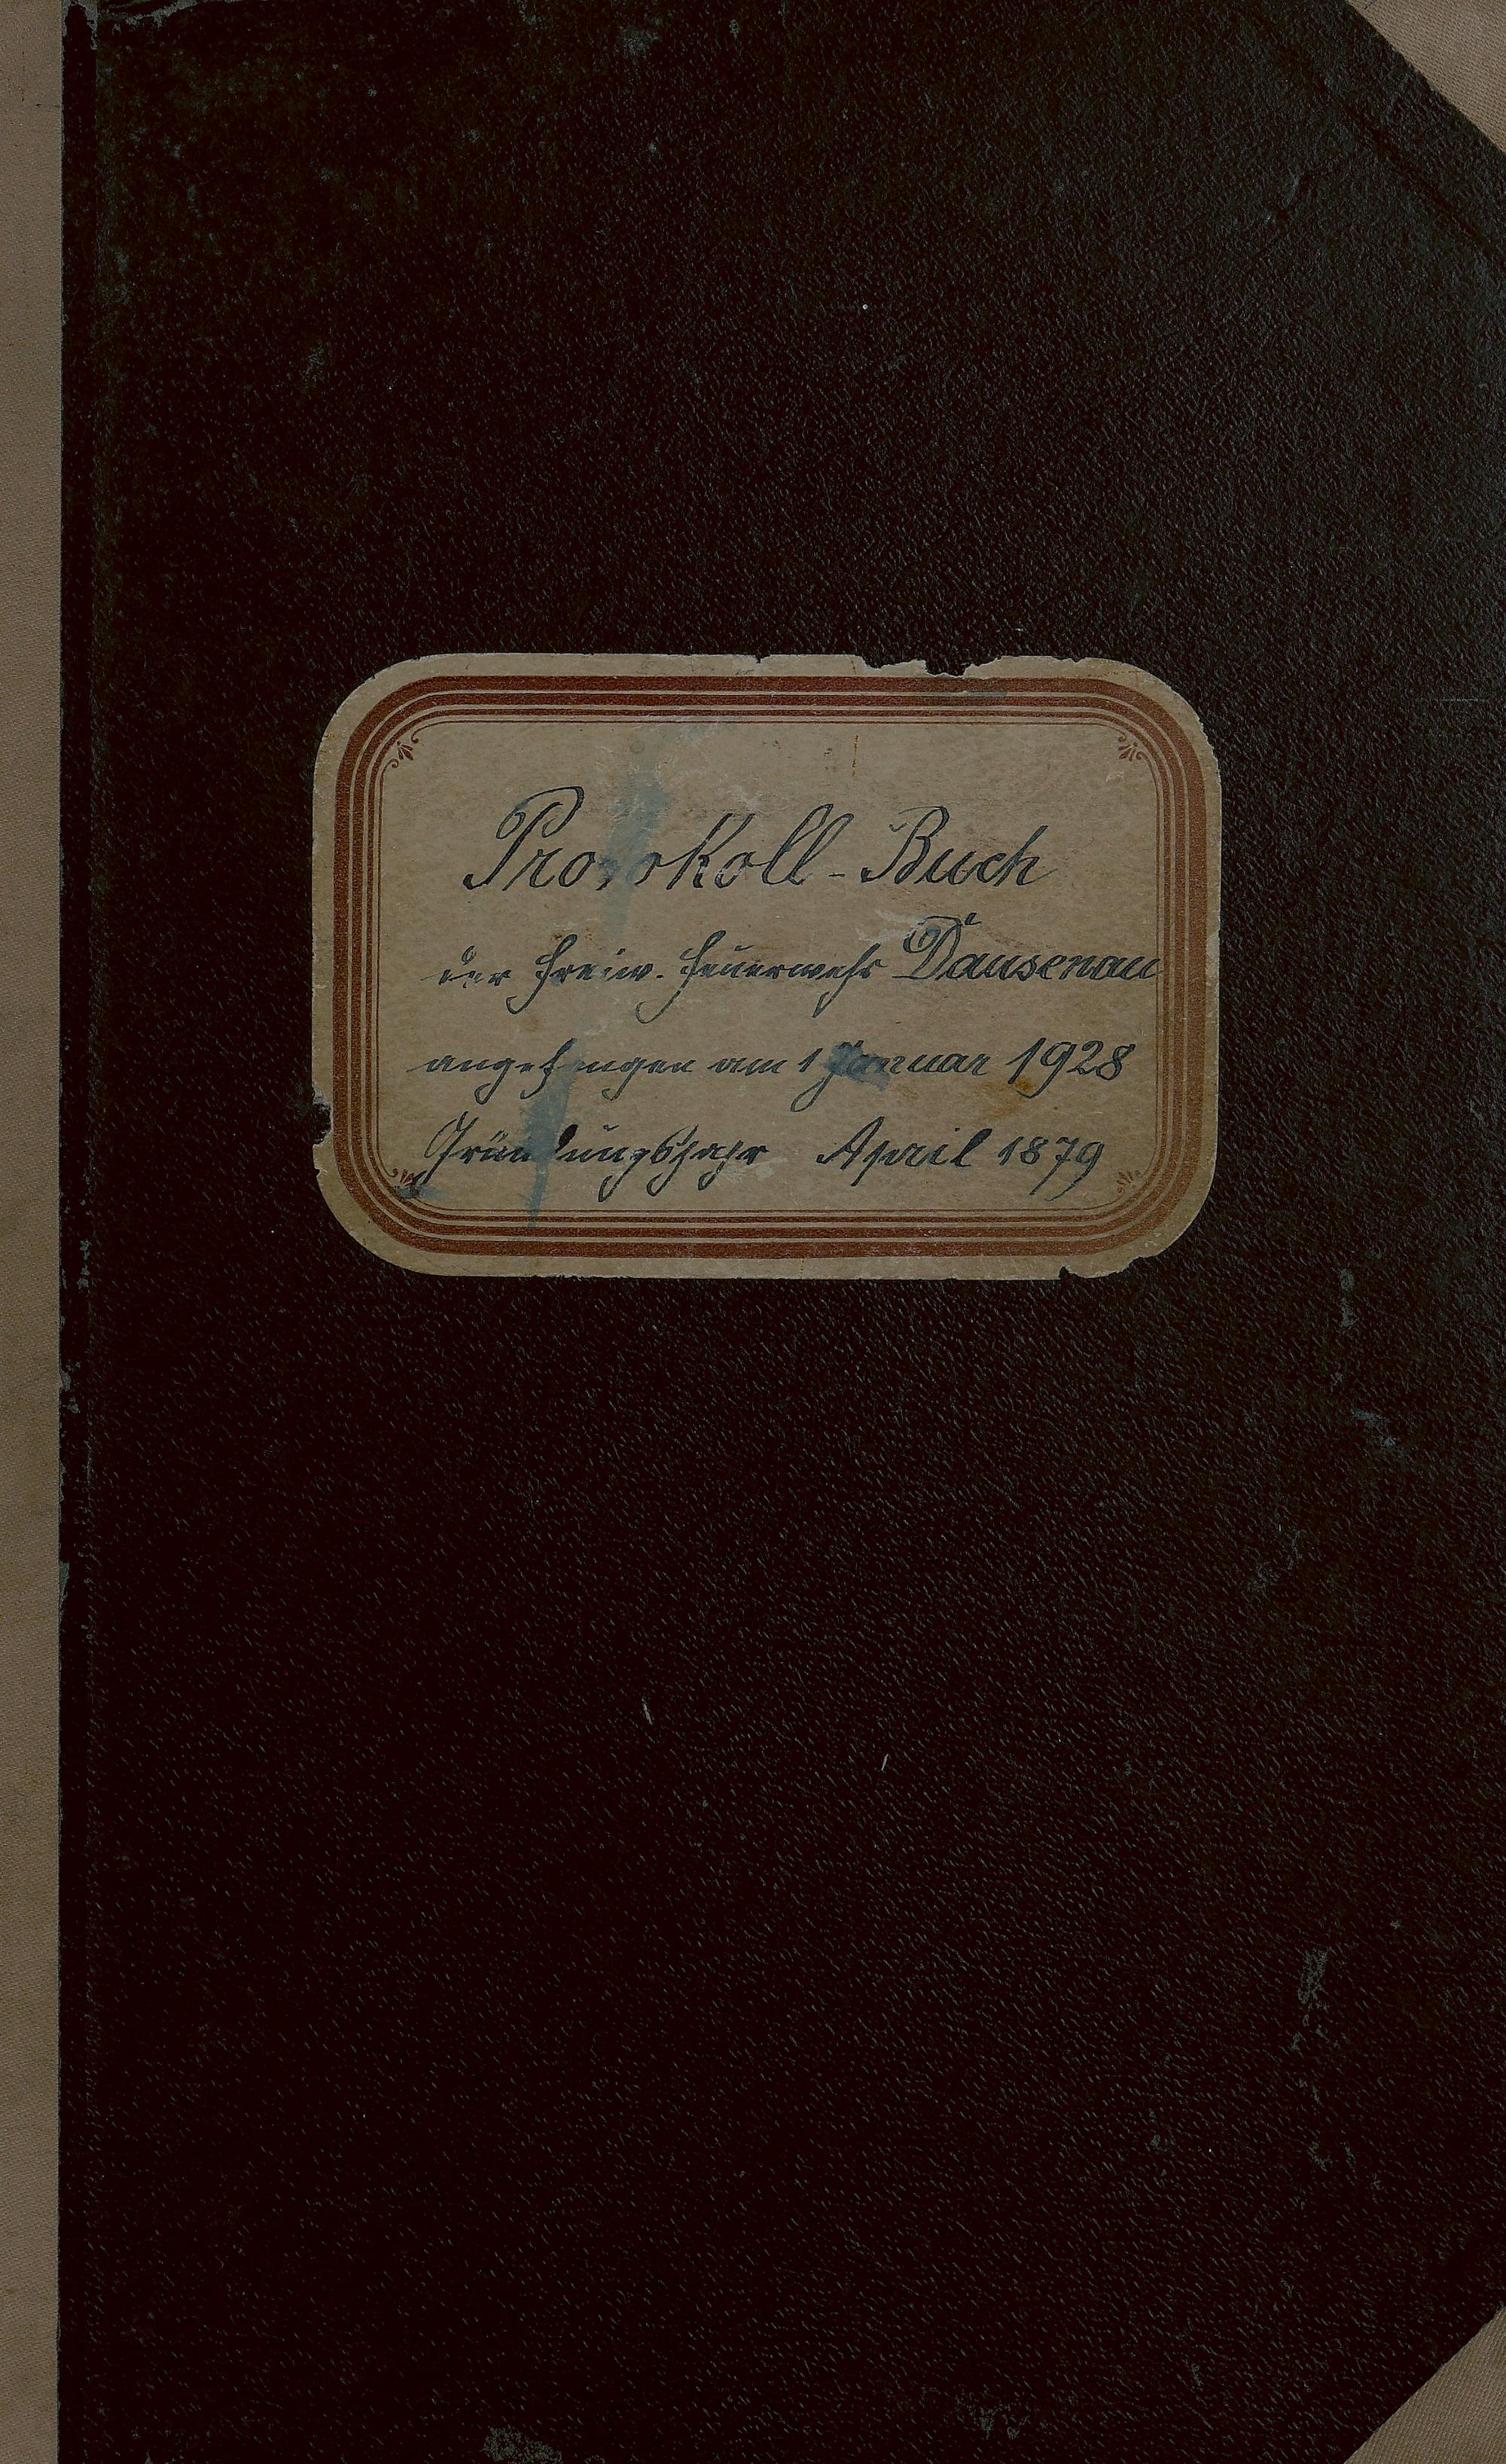 Protokoll-Buch
der Freiw. Feuerwehr Dausenau
angefangen am 1 Januar 1928
Gründungsjahr April 1879